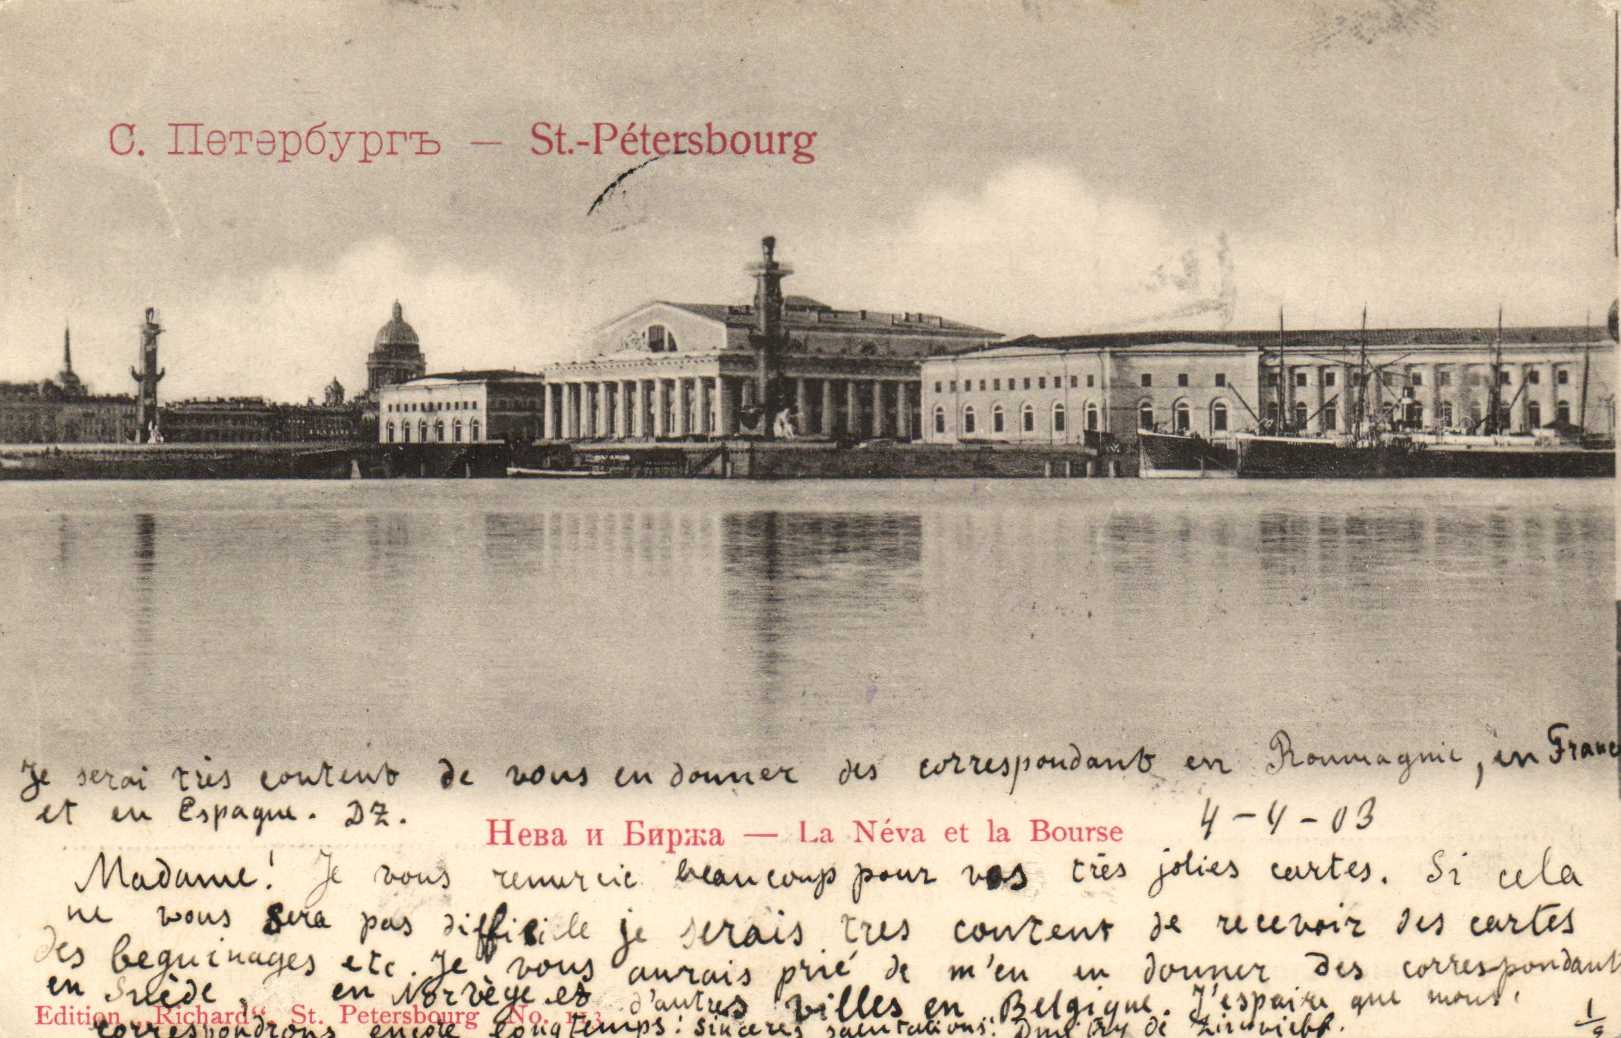 С. Петербургъ — St.-Pétersbourg
Je serai très content de vous en donner des correspondant en Roumagnie, en France
et en Espagne. DZ.
Нева и Биржа — La Néva et la Bourse
4-4-03
Madame! Je vous remercie beaucoup pour vos très jolies cartes. Si cela
ne vous sera pas difficile je serais tres content de recevoir des cartes
des beguinages etc. Je vous aurais prié de m'en en donner des correspondant
en Suède, en Norvège et d'autres villes en Belgique. J'espaire que nous
Edition „Richard“, St. Petersbourg No.
correspondrons encore longtemps! Sincères salutations. Dmitry de